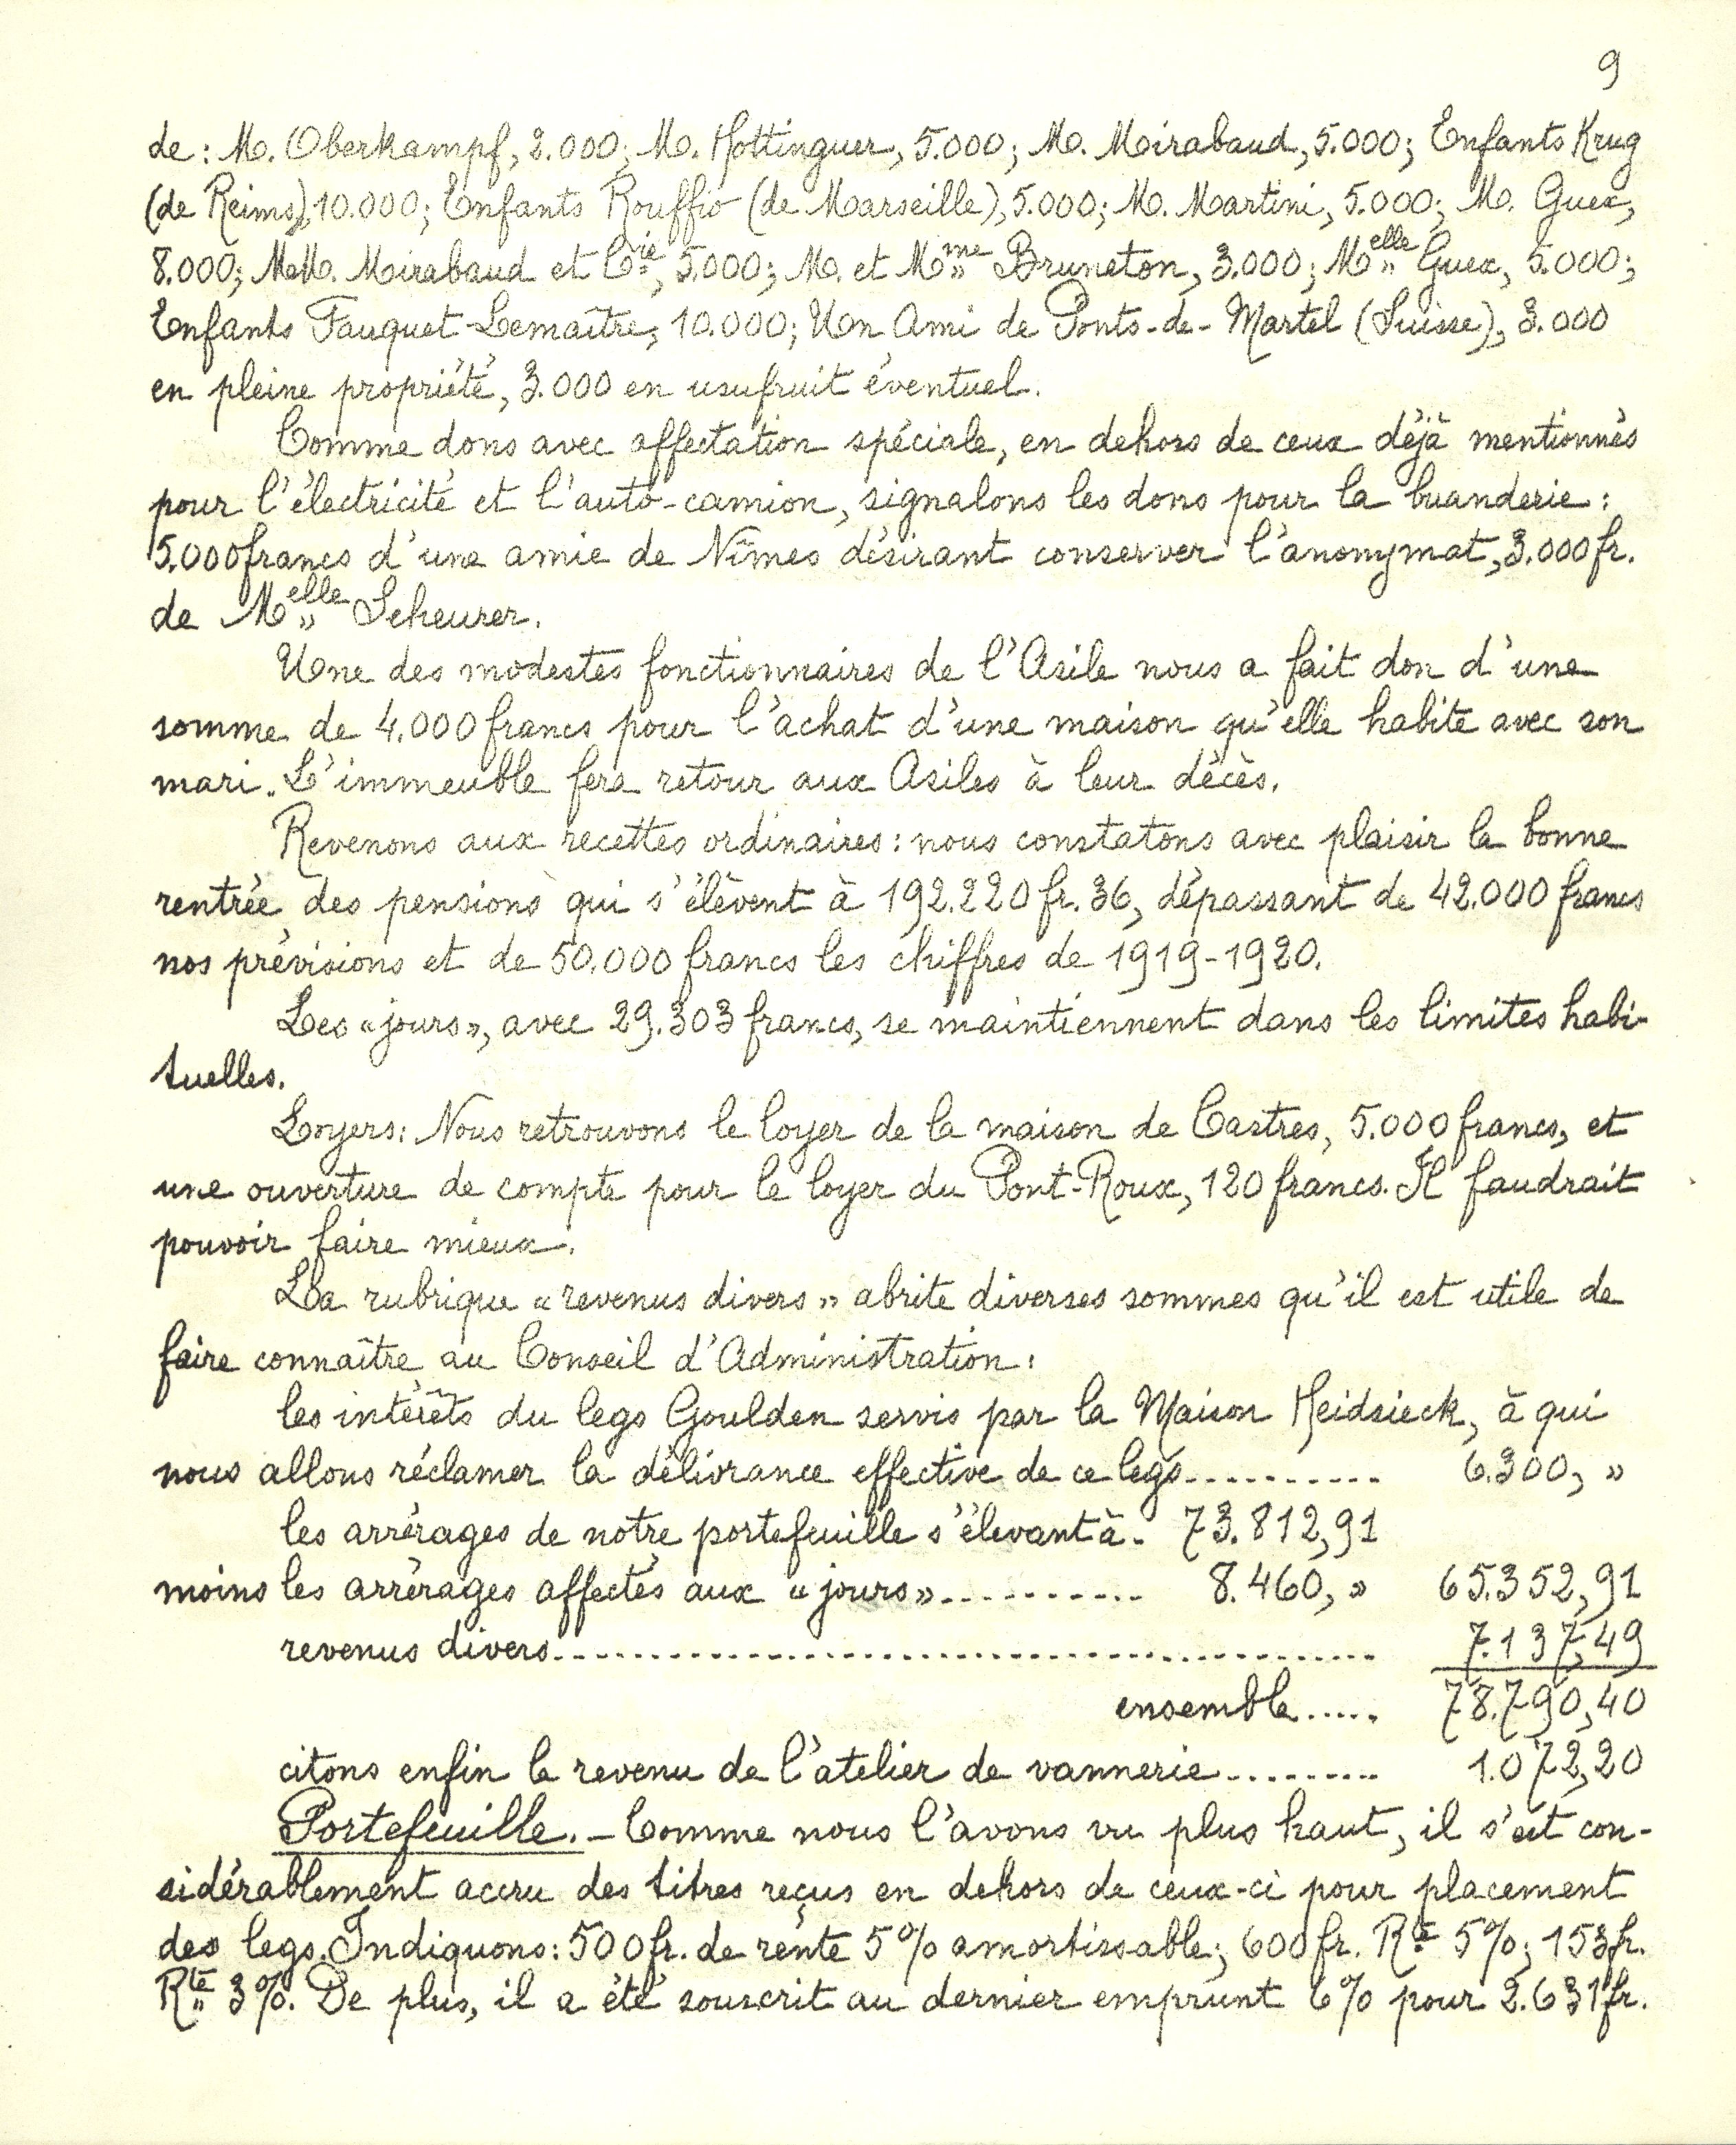 9
de : M. Oberkampf, 2.000; M. Hottinguer, 5.000; M. Mirabaud, 5.000; Enfants Krug
(de Reims), 10.000; Enfants Rouffio (de Marseille), 5.000; M. Martini, 5.000; M. Guex,
8.000; M.M. Mirabaud et Cie, 5.000; M. et Mme Bruneton, 3.000; Melle Guex, 5.000;
Enfants Fauquet-Lemaître, 10.000; Un Ami de Ponts-de-Martel (Suisse), 3.000
en pleine propriété, 3.000 en usufruit éventuel.
Comme dons avec affectation spéciale, en dehors de ceux déjà mentionnés
pour l'électricité et l'auto-camion, signalons les dons pour la buanderie :
5.000 francs d'une amie de Nîmes désirant conserver l'anonymat, 3.000 fr.
de Melle Scheurer.
Une des modestes fonctionnaires de l'Asile nous a fait don d'une
somme de 4.000 francs pour l'achat d'une maison qu'elle habite avec son
mari. L'immeuble fera retour aux Asiles à leur décès.
Revenons aux recettes ordinaires : nous constatons avec plaisir la bonne
rentrée des pensions qui s'élèvent à 192.220 fr. 36, dépassant de 42.000 francs
nos prévisions et de 50.000 francs les chiffres de 1919-1920.
Les « jours », avec 29.303 francs, se maintiennent dans les limites habi-
tuelles.
Loyers : Nous retrouvons le loyer de la maison de Castres, 5.000 francs, et
une ouverture de compte pour le loyer du Pont-Roux, 120 francs. Il faudrait
pouvoir faire mieux.
La rubrique « revenus divers » abrite diverses sommes qu'il est utile de
faire connaître au Conseil d'Administration :
les intérêts du legs Goulden servis par la Maison Heidsieck, à qui
nous allons réclamer la délivrance effective de ce legs.......... 6.300, »
les arrérages de notre portefeuille s'élevant à. 73.812,91
moins les arrérages affectés aux « jours ».......... 8.460, » 65.352,91
revenus divers.......................................... 7.137,49
ensemble..... 78.790,40
citons enfin le revenu de l'atelier de vannerie......... 1.072,20
Portefeuille. - Comme nous l'avons vu plus haut, il s'est con-
sidérablement accru des titres reçus en dehors de ceux-ci pour placement
des legs. Indiquons : 500 fr. de rente 5% amortissable; 600 fr. Rte 5%; 153 fr.
Rte 3%. De plus, il a été souscrit au dernier emprunt 6% pour 2.631 fr.